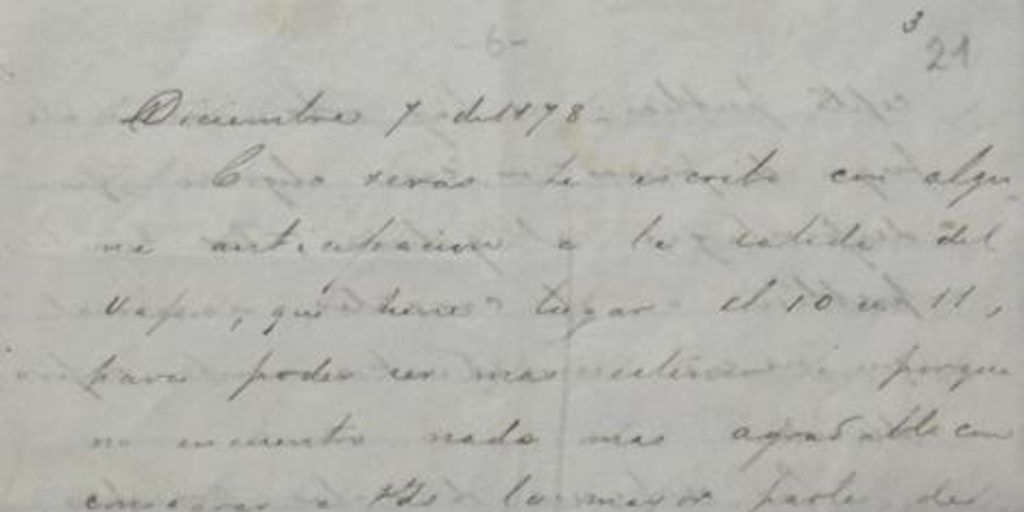 3
21
Diciembre 7 de 1878.
Como veras te escribo con algu-
na anticipacion a la salida del
vapor, que tiene lugar el 10 u 11,
para poder ser mas estenso i porque
no encuentro nada mas agradable con
consagrar a Uds la mayor parte del